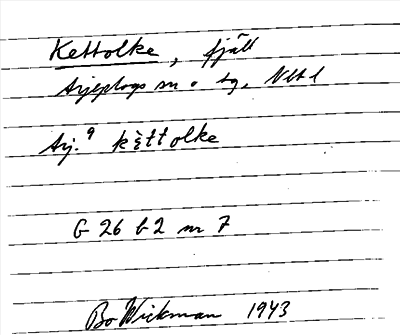 Kettolke, fjäll
Arjeplogs sn o tg, Nbtl
Arj. 9 kèttolke
G 26 b 2 nr 7
Bo Wickman 1943